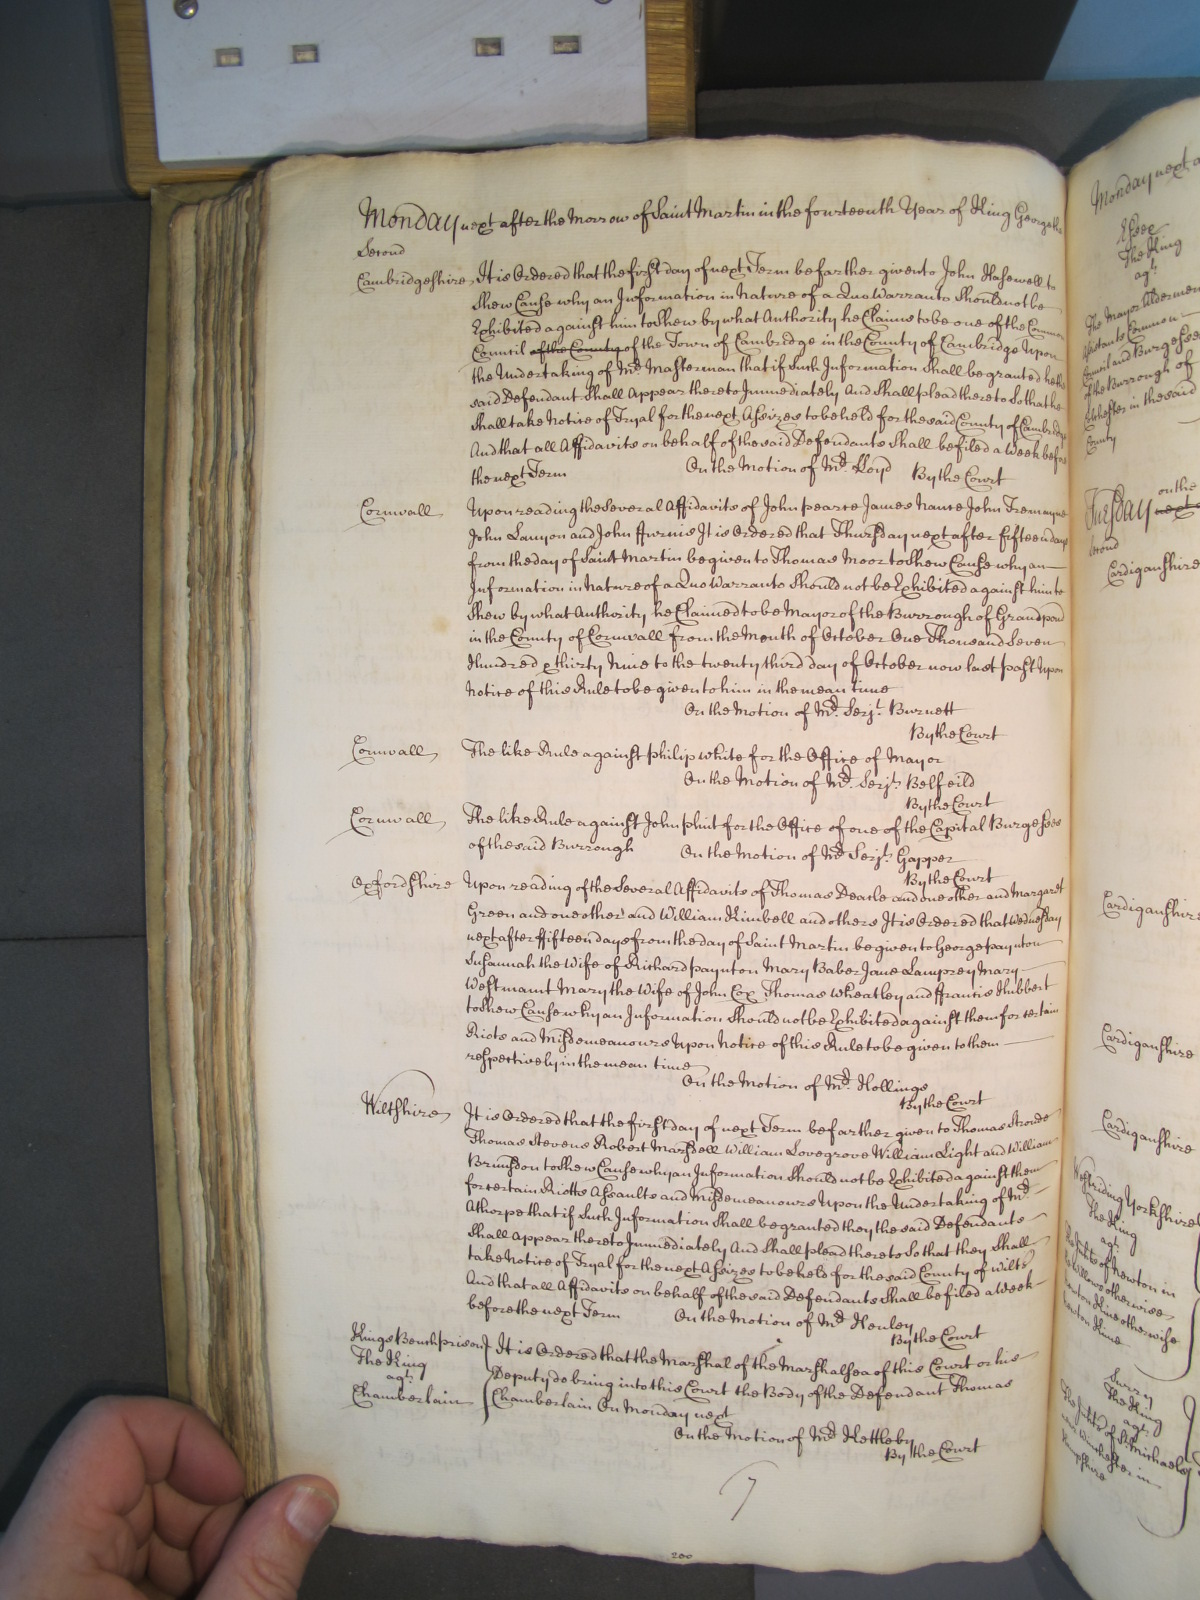 Monday next after the Morrow of Saint Martin in the fourteenth Year of King George the
Second
Cambridgeshire It is Ordered that the first day of next Term be farther given to John Hasewell to
Shew Cause why an Information in Nature of a Quo Warranto Should not be
Exhibited against him to Shew by what Authority he Claims to be one of the Common
Council of the County of the Town of Cambridge in the County of Cambridge Upon
the Undertaking of Mr. Masterman that if Such Information Shall be granted he the
said Defendant Shall Appear thereto Immediately And Shall plead thereto So that he
Shall take Notice of Tryal for the next Assizes to be held for the said County of Cambridge
And that all Affidavits on behalf of the said Defendants Shall be filed a Week before
the next Term On the Motion of Mr. Lloyd By the Court
Cornwall Upon reading the Several Affidavits of John pearce James Nance John Tremayne
John Lanyon and John ffurnis It is Ordered that Thursday next after fifteen days
from the day of Saint Martin be given to Thomas Moor to Shew Cause why an
Information in Nature of a Quo Warranto Should not be Exhibited against him to
Shew by what Authority he Claimed to be Mayor of the Burrough of Grandpond
in the County of Cornwall from the Month of October One Thousand Seven
Hundred & thirty Nine to the twenty third day of October now last past Upon
Notice of this Rule to be given to him in the mean time
On the Motion of Mr. Serjt. Burnett
By the Court
Cornwall The like Rule against philip white for the Office of Mayor
On the Motion of Mr. Serjt. Belfeild
By the Court
Cornwall The like Rule against John plint for the Office of one of the Capital Burgesses
of the said Burrough On the Motion of Mr. Serjt. Gapper
By the Court
Oxfordshire Upon reading of the Several Affidavits of Thomas Deacle and one other and Margaret
Green and one other and William Kimbell and others It is Ordered that Wednesday
next after ffifteen days from the day of Saint Martin be given to George paynton
Susannah the Wife of Richard paynton Mary Baber Jane Lamprey Mary
Westmamt Mary the Wife of John Cox Thomas Wheatley and ffrancis Hubbert
to Shew Cause why an Information Should not be Exhibited against them for certain
Riots and Misdemeanours Upon Notice of this Rule to be given to them
respectively in the mean time
On the Motion of Mr. Hollings
By the Court
Wiltshire It is Ordered that the first day of next Term be farther given to Thomas Stroude
Thomas Stevens Robert Marshell William Lovegrove William Light and William
Brunsdon to Shew Cause why an Information Should not be Exhibited against them
for certain Riotts Assaults and Misdemeanours Upon the Undertaking of Mr.
Athorpe that if Such Information Shall be granted they the said Defendants
Shall Appear thereto Immediately And Shall plead thereto So that they Shall
take Notice of Tryal for the next Assizes to be held for the said County of Wilts
And that all Affidavits on behalf of the said Defendants Shall be filed a Week
before the next Term On the Motion of Mr. Henley
By the Court
Kings Bench prison It is Ordered that the Marshal of the Marshalsea of this Court or his
The King Deputy do bring into this Court the Body of the Defendant Thomas
agt.
Chamberlain Chamberlain On Monday next
On the Motion of Mr. Kettleby
By the Court
200
Monday next
Essex
The King
agt.
The Mayor Aldermen
Assistants Common
Council and Burgesses
of the Burrough of
Colchester in the said
County
on the
Tuesday next
Second
Cardiganshire
Cardiganshire
Cardiganshire
Cardiganshire
Westriding Yorkshire
The King
agt.
of Newton in
the Willows otherwise
Newton Kine otherwise
Newton Kine
Surry
The King
agt.
of St. Michaels
near Winchester in
Hampshire